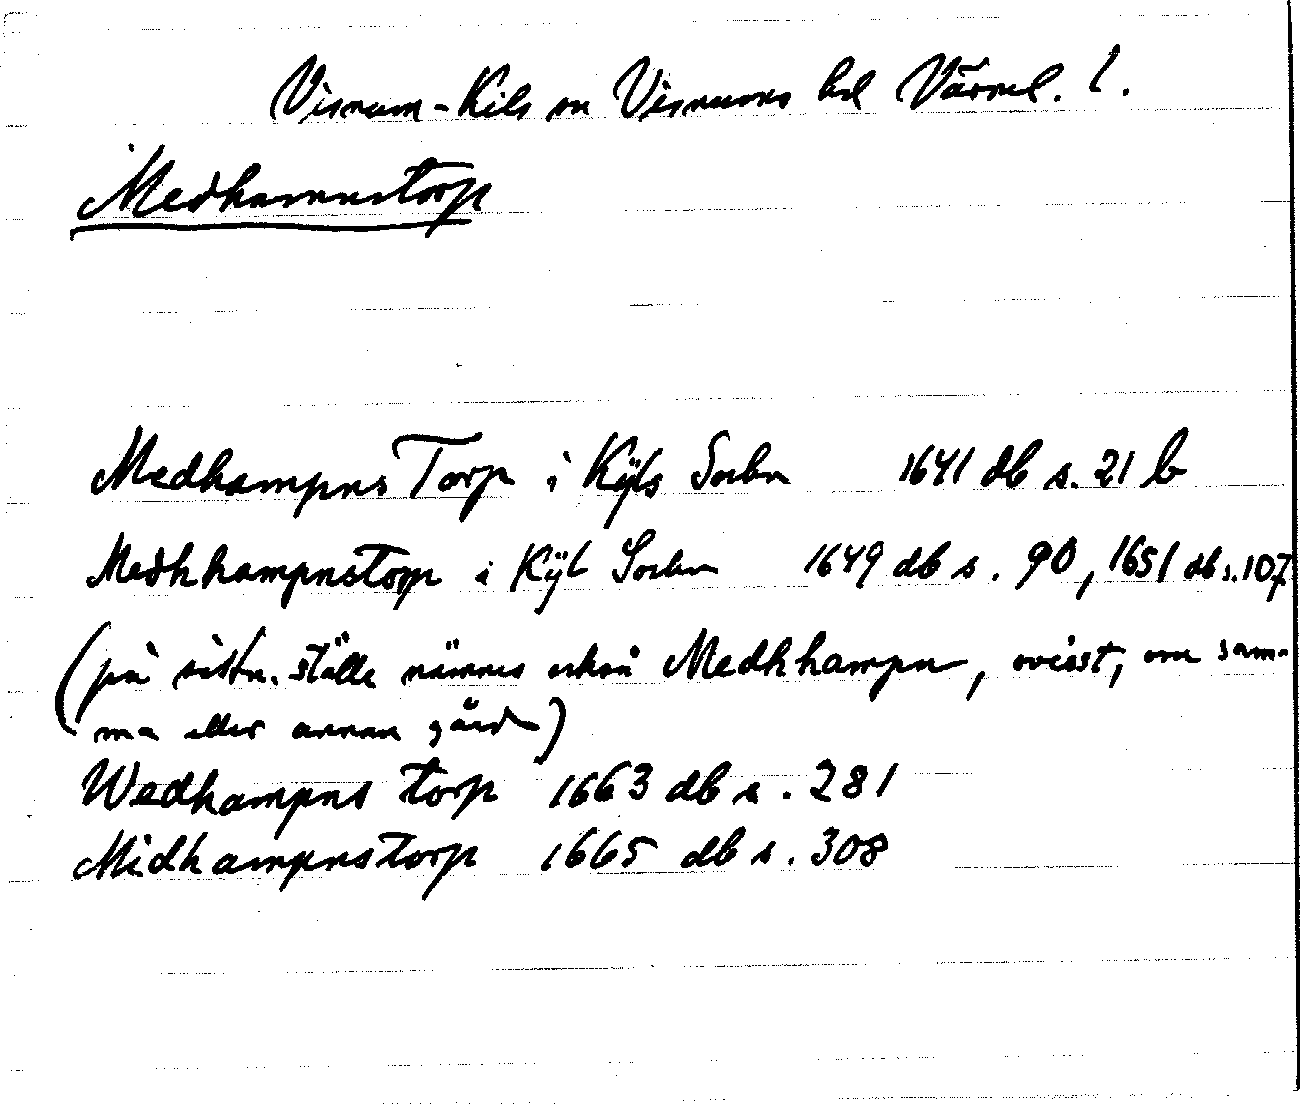 Visnum-Kils sn Visnums hd Värml. l.
Medhamnstorp
Medhampns Torp i Kÿls Sochn 1641 db s. 21 b
Medhhampnstorp i Kÿl Sochn 1649 db s. 90, 1651 db s. 107
(på sistn. ställe nämnes också Medhhampn, ovisst, om sam-
ma eller annan gård)
Wedhampns torp 1663 db s. 281
Midhampnstorp 1665 db s. 308